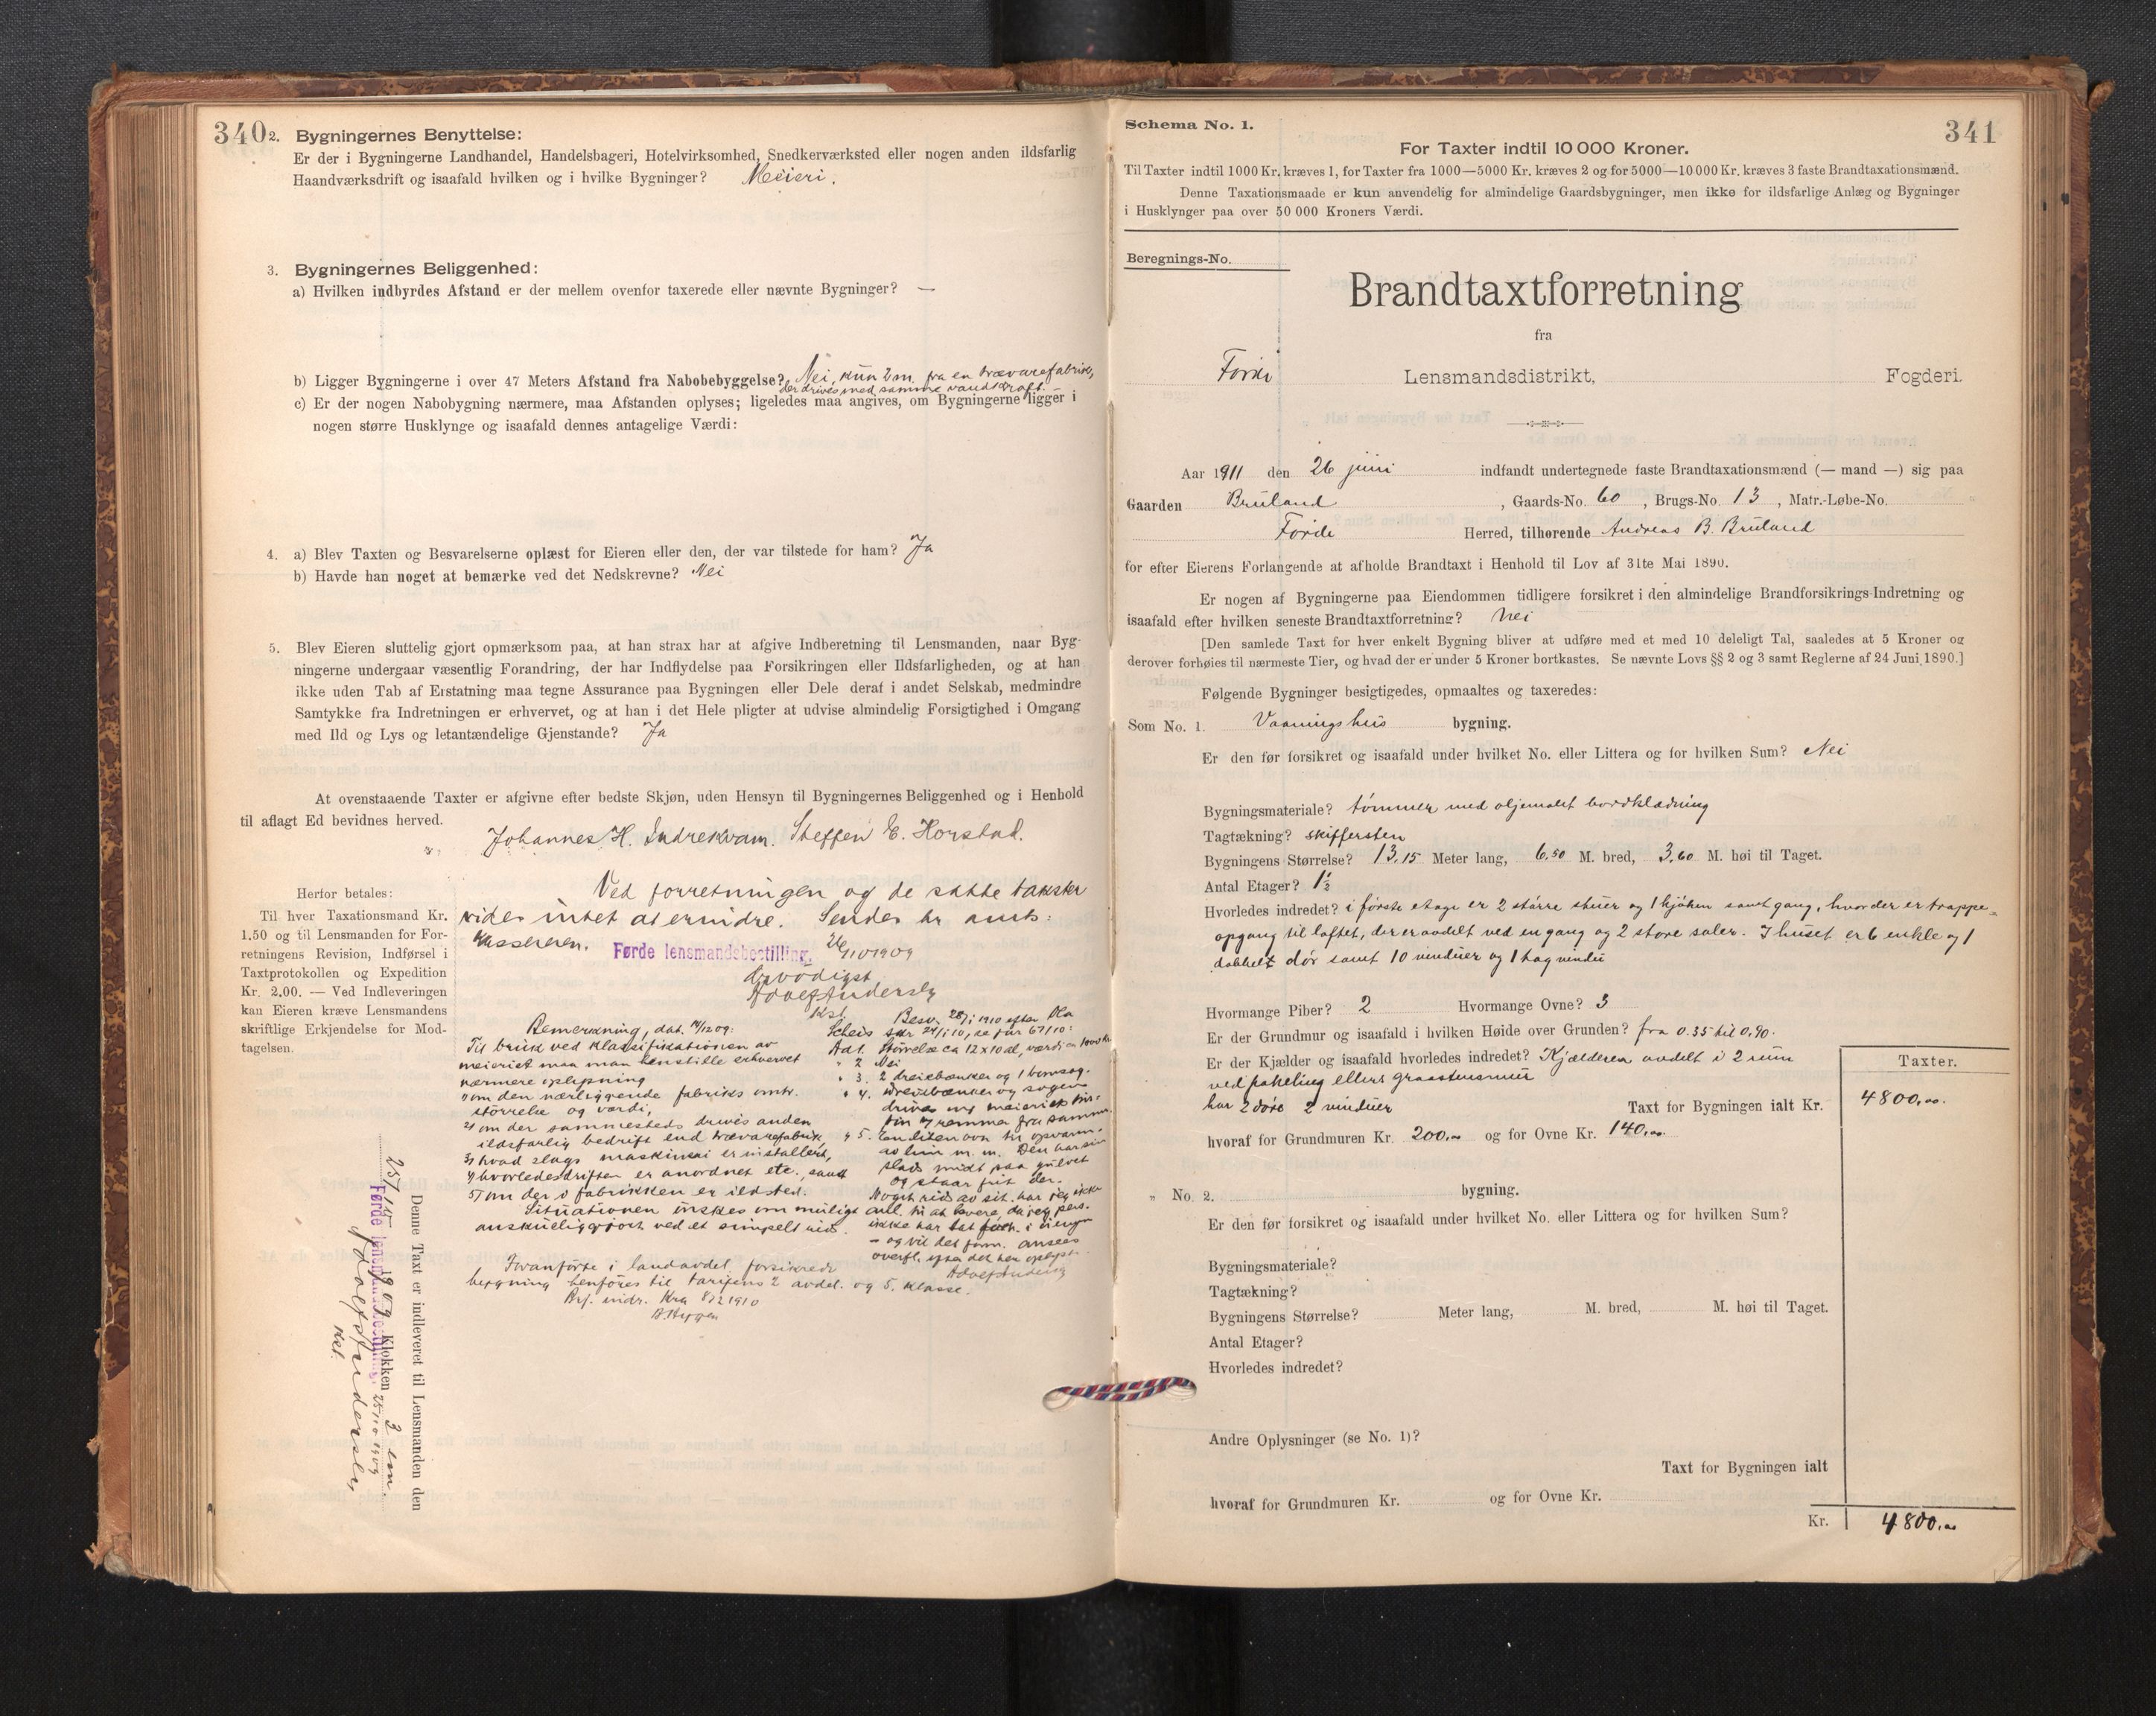 340
2. Bygningernes Benyttelse:
Er der i Bygningerne Landhandel, Handelsbageri, Hotelvirksomhed, Snedkerværksted eller nogen anden ildsfarlig
Haandværksdrift og isaafald hvilken og i hvilke Bygninger? Meieri.
3. Bygningernes Beliggenhed:
a) Hvilken indbyrdes Afstand er der mellem ovenfor taxerede eller nævnte Bygninger? —
b) Ligger Bygningerne i over 47 Meters Afstand fra Nabobebyggelse? Nei, kun 2 m. fra en trævarefabrik,
der drives med samme vandkraft.
c) Er der nogen Nabobygning nærmere, maa Afstanden oplyses; ligeledes maa angives, om Bygningerne ligger i
nogen større Husklynge og isaafald dennes antagelige Værdi:
4. a) Blev Taxten og Besvarelserne oplæst for Eieren eller den, der var tilstede for ham? Ja
b) Havde han noget at bemærke ved det Nedskrevne? Nei
5. Blev Eieren sluttelig gjort opmærksom paa, at han strax har at afgive Indberetning til Lensmanden, naar Byg-
ningerne undergaar væsentlig Forandring, der har Indflydelse paa Forsikringen eller Ildsfarligheden, og at han
ikke uden Tab af Erstatning maa tegne Assurance paa Bygningen eller Dele deraf i andet Selskab, medmindre
Samtykke fra Indretningen er erhvervet, og at han i det Hele pligter at udvise almindelig Forsigtighed i Omgang
med Ild og Lys og letantændelige Gjenstande? Ja
At ovenstaaende Taxter er afgivne efter bedste Skjøn, uden Hensyn til Bygningernes Beliggenhed og i Henhold
til aflagt Ed bevidnes herved.
Johannes H. Indrekvam. Steffen E. Horstad.
Herfor betales:
Til hver Taxationsmand Kr.
1.50 og til Lensmanden for For-
retningens Revision, Indførsel i
Taxtprotokollen og Expedition
Kr. 2.00. — Ved Indleveringen
kan Eieren kræve Lensmandens
skriftlige Erkjendelse for Mod-
tagelsen.
Ved forretningen og de satte takster
vides intet at erindre. Sendes hr. amts-
kassereren.
Førde lensmandsbestilling, 26/10 1909
Ærbødigst
Adolf Andersly
Kst.
Bemerkning, dat. 14/12 09:
Til bruk ved klassifikationen av
meieriet maa man henstille erhvervet
nærmere oplysning
1) om den nærliggende fabriks omtr.
størrelse og værdi,
2) om der sammesteds drives anden
ildsfarlig bedrift end trævarefabrik,
3) hvad slags maskineri er installert,
4) hvorledes driften er anordnet etc., samt
5) om der i fabrikken er ildsted.
Situationen ønskes om muligt
anskueliggjort ved et simpelt rids.
Besv. 28/1 1910 efter Ola
Adt. 1. Størrelse ca 12 x 10 al, værdi ca 1000 kr.
" 2. Nei
" 3. 2 dreiebænker og 1 bomsag.
" 4. Dreiebænker og sagen
drives
" 5. En liten ovn til opvarm.
av lim m. m. Den har sin
plads midt paa gulvet
og staar frit der.
Noget rids av sit. har jeg ikke
anl. til at levere, da jeg pers.
Adolf Andersly
Ovanførte i landavdel. forsikrede
bygning henføres til tarifens 2 avdel. og 5. klasse.
Brf. indr. Kra 8/2 1910
Denne Taxt er indleveret til Lensmanden den
25/10 1909 Klokken 3 em.
Førde lensmandsbestilling, 25/10 1909
Adolf Andersly,
Kst.
Schema No. 1.
341
For Taxter indtil 10 000 Kroner.
Til Taxter indtil 1000 Kr. kræves 1, for Taxter fra 1000—5000 Kr. kræves 2 og for 5000—10 000 Kr. kræves 3 faste Brandtaxationsmænd.
Denne Taxationsmaade er kun anvendelig for almindelige Gaardsbygninger, men ikke for ildsfarlige Anlæg og Bygninger
i Husklynger paa over 50 000 Kroners Værdi.
Beregnings-No.
Brandtaxtforretning
fra
Førde Lensmandsdistrikt, Fogderi.
Aar 1911 den 26 juni indfandt undertegnede faste Brandtaxationsmænd (— mand —) sig paa
Gaarden Bruland, Gaards-No. 60, Brugs-No. 13, Matr.-Løbe-No.
Førde Herred, tilhørende Andreas B. Bruland
for efter Eierens Forlangende at afholde Brandtaxt i Henhold til Lov af 31te Mai 1890.
Er nogen af Bygningerne paa Eiendommen tidligere forsikret i den almindelige Brandforsikrings-Indretning og
isaafald efter hvilken seneste Brandtaxtforretning? Nei
[Den samlede Taxt for hver enkelt Bygning bliver at udføre med et med 10 deleligt Tal, saaledes at 5 Kroner og
derover forhøies til nærmeste Tier, og hvad der er under 5 Kroner bortkastes. Se nævnte Lovs §§ 2 og 3 samt Reglerne af 24 Juni 1890.]
Følgende Bygninger besigtigedes, opmaaltes og taxeredes:
Som No. 1. Vaaningshus bygning.
Er den før forsikret og isaafald under hvilket No. eller Littera og for hvilken Sum? Nei
Bygningsmateriale? tømmer med oljemalet bordklædning
Tagtækning? skiffersten
Bygningens Størrelse? 13,15 Meter lang, 6,50 M. bred, 3,60 M. høi til Taget.
Antal Etager? 1½
Hvorledes indredet? i første etage er 2 større stuer og 1 kjøken samt gang, hvor der er trappe-
opgang til loftet, der er avdelt ved en gang og 2 store saler. I huset er 6 enkle og 1
dobbelt dør samt 10 vinduer og 1 tagvindu
Hvormange Piber? 2 Hvormange Ovne? 3
Er der Grundmur og isaafald i hvilken Høide over Grunden? fra 0.35 til 0,90.
Er der Kjælder og isaafald hvorledes indredet? Kjælderen avdelt i 2 rum
ved paneling ellers graastensmur
har 2 døre 2 vinduer
Taxter.
Taxt for Bygningen ialt Kr. 4800,00.
hvoraf for Grundmuren Kr. 200,00 og for Ovne Kr. 140,00.
" No. 2. bygning.
Er den før forsikret og isaafald under hvilket No. eller Littera og for hvilken Sum?
Bygningsmateriale?
Tagtækning?
Bygningens Størrelse? Meter lang, M. bred, M. høi til Taget.
Antal Etager?
Hvorledes indredet?
Andre Oplysninger (se No. 1)?
Taxt for Bygningen ialt
hvoraf for Grundmuren Kr. og for Ovne Kr.
Kr. 4800,00